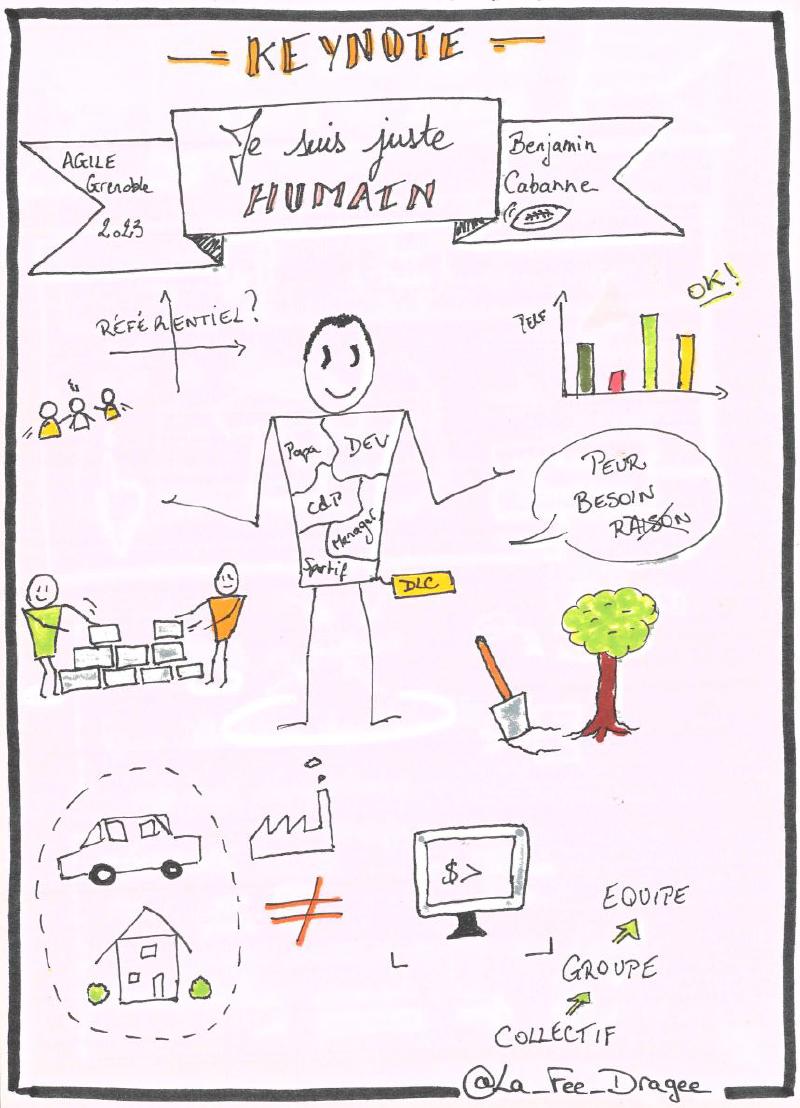 KEYNOTE
AGILE
Grenoble
2023
Je suis juste
HUMAIN
Benjamin
Cabanne
RÉFÉRENTIEL?
PERF
OK!
Papa
DEV
CdP
Manager
Sportif
DLC
PEUR
BESOIN
RAISON
$>
EQUIPE
GROUPE
COLLECTIF
@La_Fee_Dragee